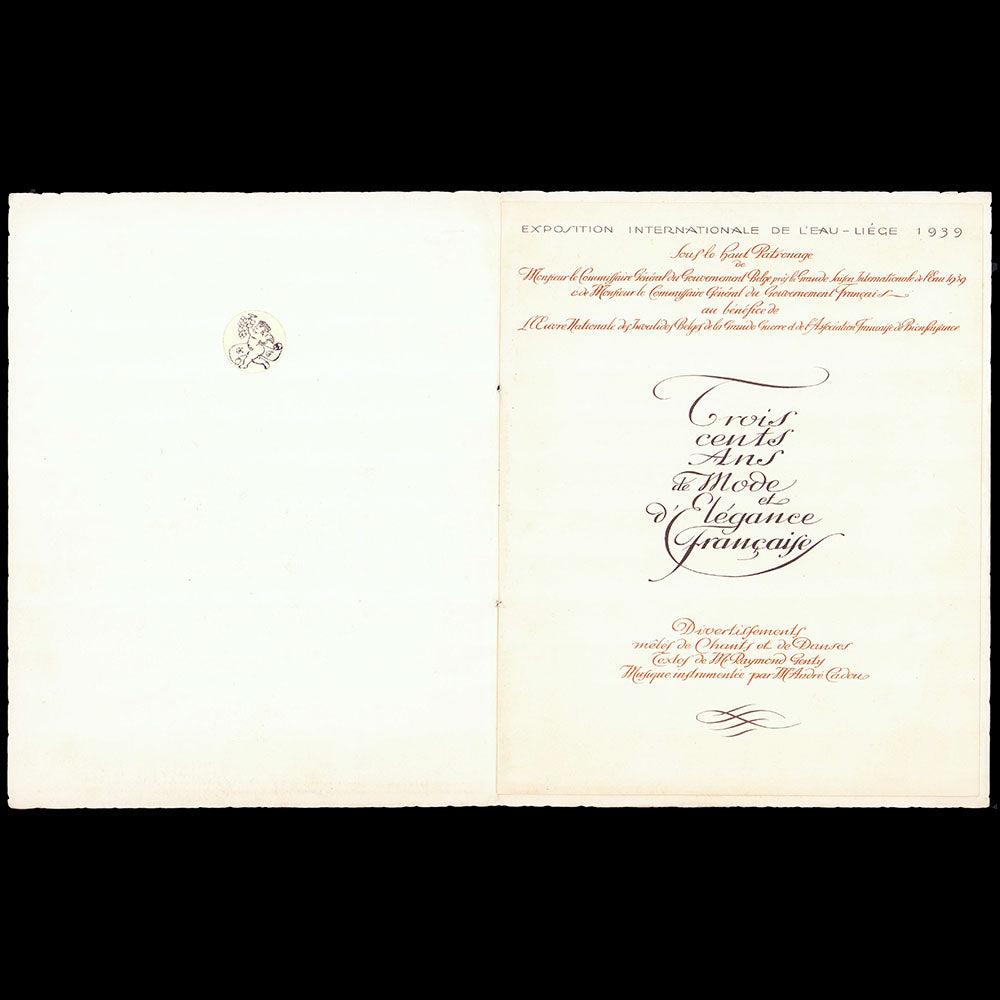 EXPOSITION INTERNATIONALE DE L'EAU - LIÉGE 1939
Sous le haut Patronage
de
Monsieur le Commissaire Général du Gouvernement Belge près la Grande Saison Internationale de l'Eau 1939
& de Monsieur le Commissaire Général du Gouvernement Français
au bénéfice de
L'Œuvre Nationale des Invalides Belges de la Grande Guerre et de l'Association Française de Bienfaisance
Trois
cents
Ans
de Mode
et
d'Elégance
Française
Divertissements
mêlés de Chants et de Danses
Textes de Mr Raymond Genty
Musique instrumentée par M. André Cadou